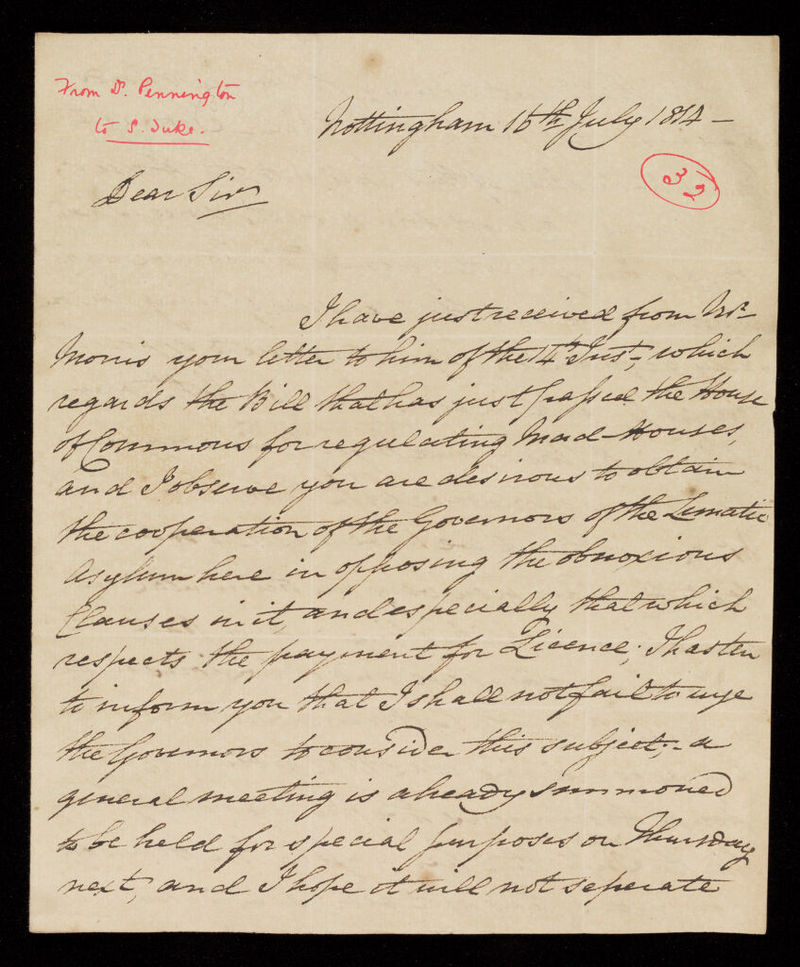 From Dr. Pennington
to S. Duke.
Nottingham 16th July 1814 -
32
Dear Sir
I have just received from Mr
Morris your letter to him of the 14th Inst, which
regards the Bill that has just passed the House
of Commons for regulating Mad-Houses,
and I observe you are desirous to obtain
the cooperation of the Governors of the Lunatic
Asylum here in opposing the obnoxious
Clauses in it, and especially that which
respects the payment for Licence; I hasten
to inform you that I shall not fail to urge
the Governors to consider this subject; - a
general meeting is already summoned
to be held for special purposes on Thursday
next, and I hope it will not seperate